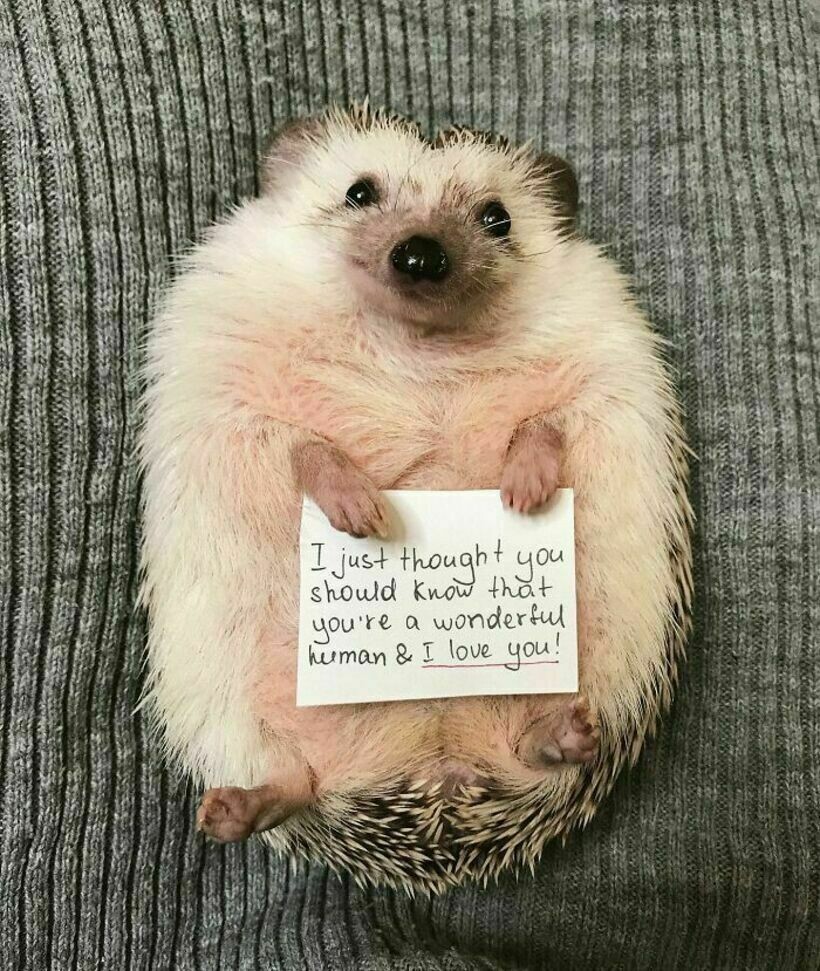 I just thought you
should know that
you're a wonderful
human & I love you!